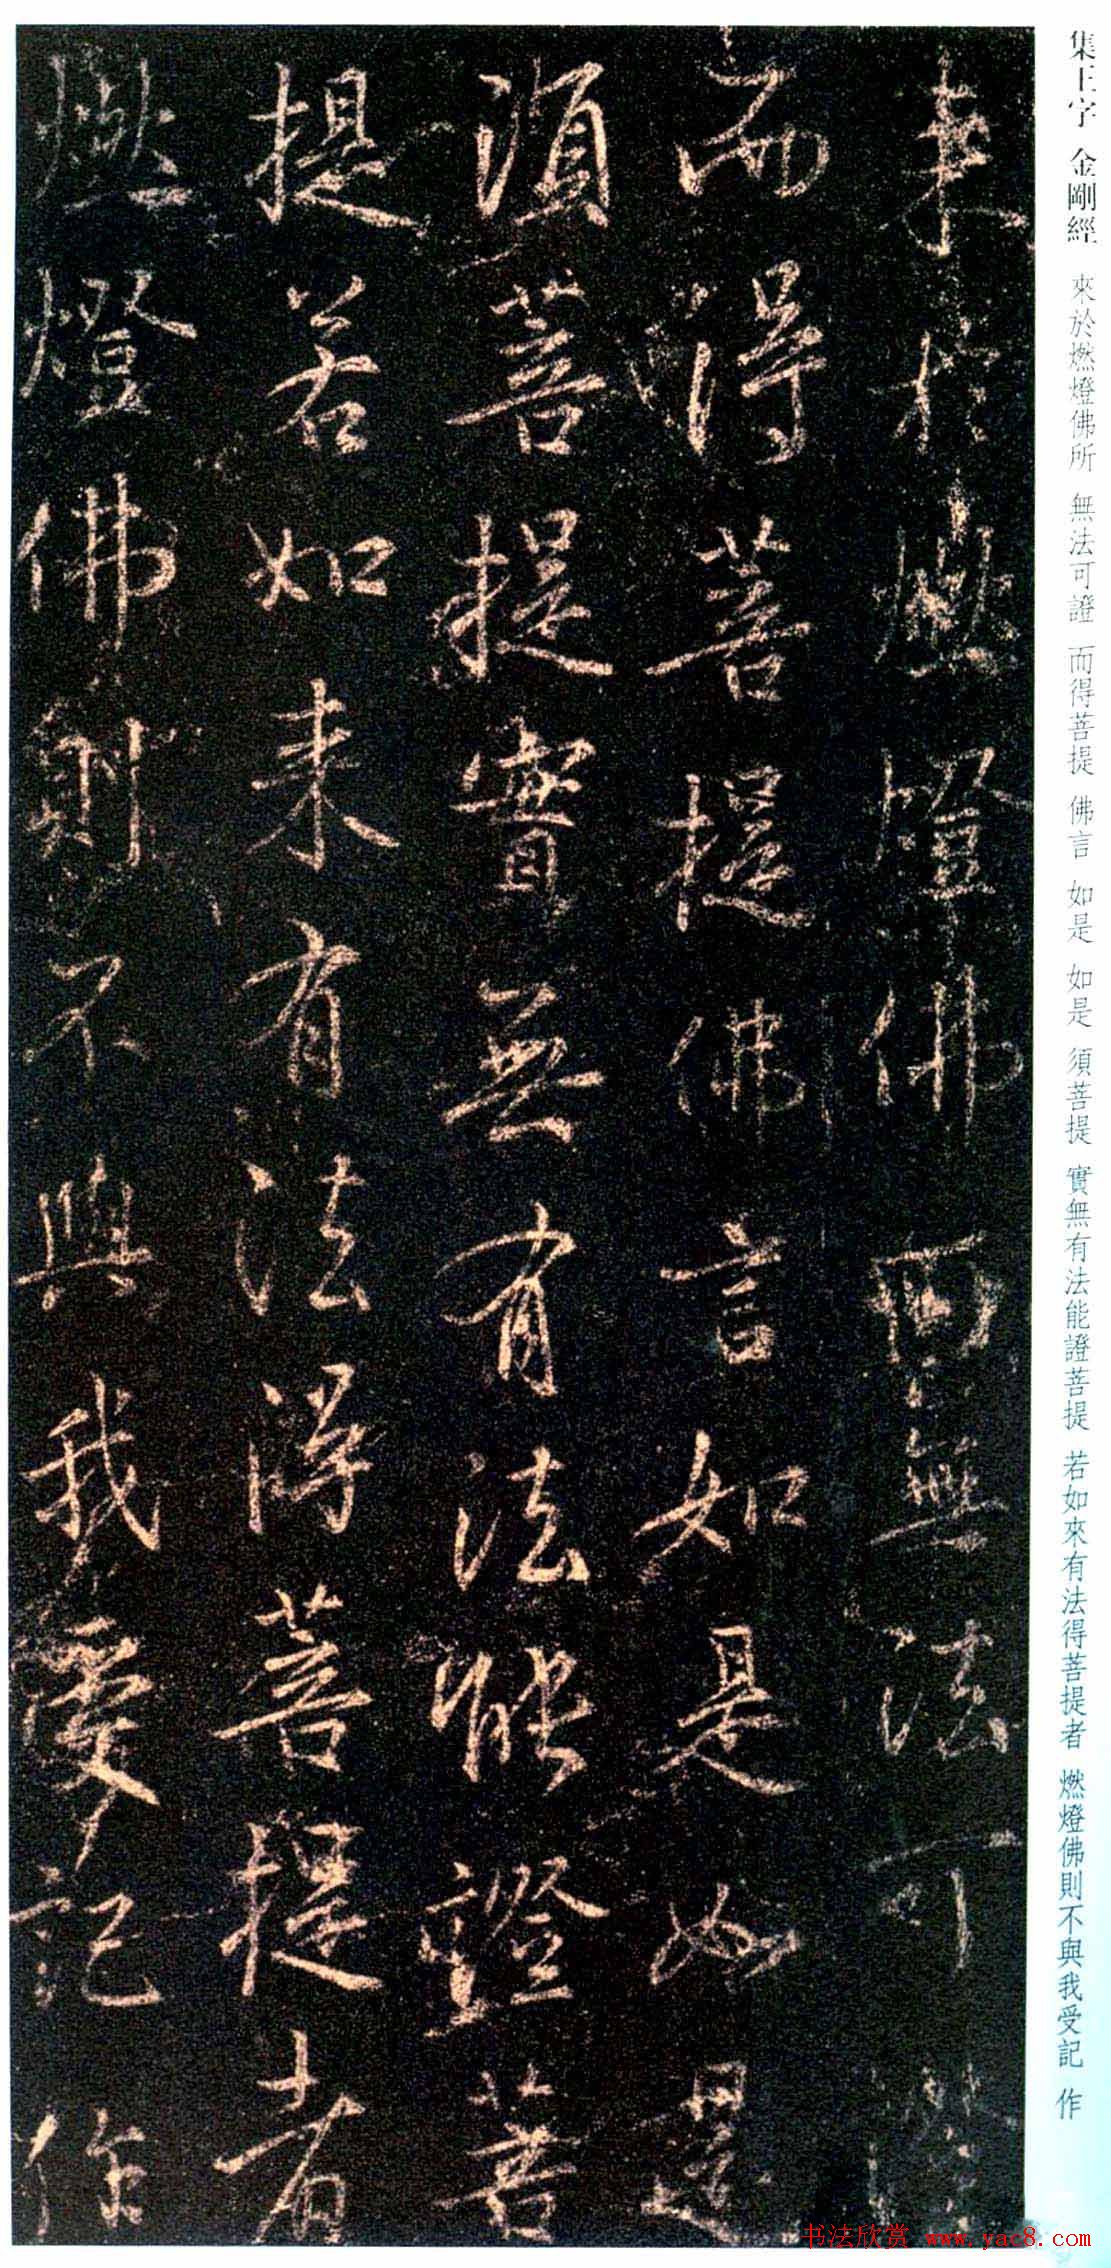 集王字 金剛經 來於燃燈佛所 無法可證 而得菩提 佛言 如是 如是 須菩提 實無有法能證菩提 若如來有法得菩提者 燃燈佛則不與我受記 作
来於燃燈佛所無法可證
而得菩提佛言如是如是
須菩提實無有法能證菩
提若如来有法得菩提者
燃燈佛則不與我受記作
书法欣赏 www.yac8.com